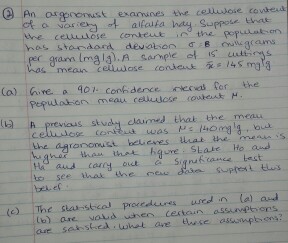 (2) An agronomist examines the cellulose content
of a variety of alfalfa hay. Suppose that
the cellulose content in the population
has standard deviation σ = 8 milligrams
per gram (mg/g). A sample of 15 cuttings
has mean cellulose content x̄ = 145 mg/g
(a) Give a 90% confidence interval for the
population mean cellulose content μ.
(b) A previous study claimed that the mean
cellulose content was μ = 140 mg/g, but
the agronomist believes that the mean is
higher than that figure. State Ho and
Ha and carry out a significance test
to see that the new data support this
belief.
(c) The statistical procedures used in (a) and
(b) are valid when certain assumptions
are satisfied. What are these assumptions?